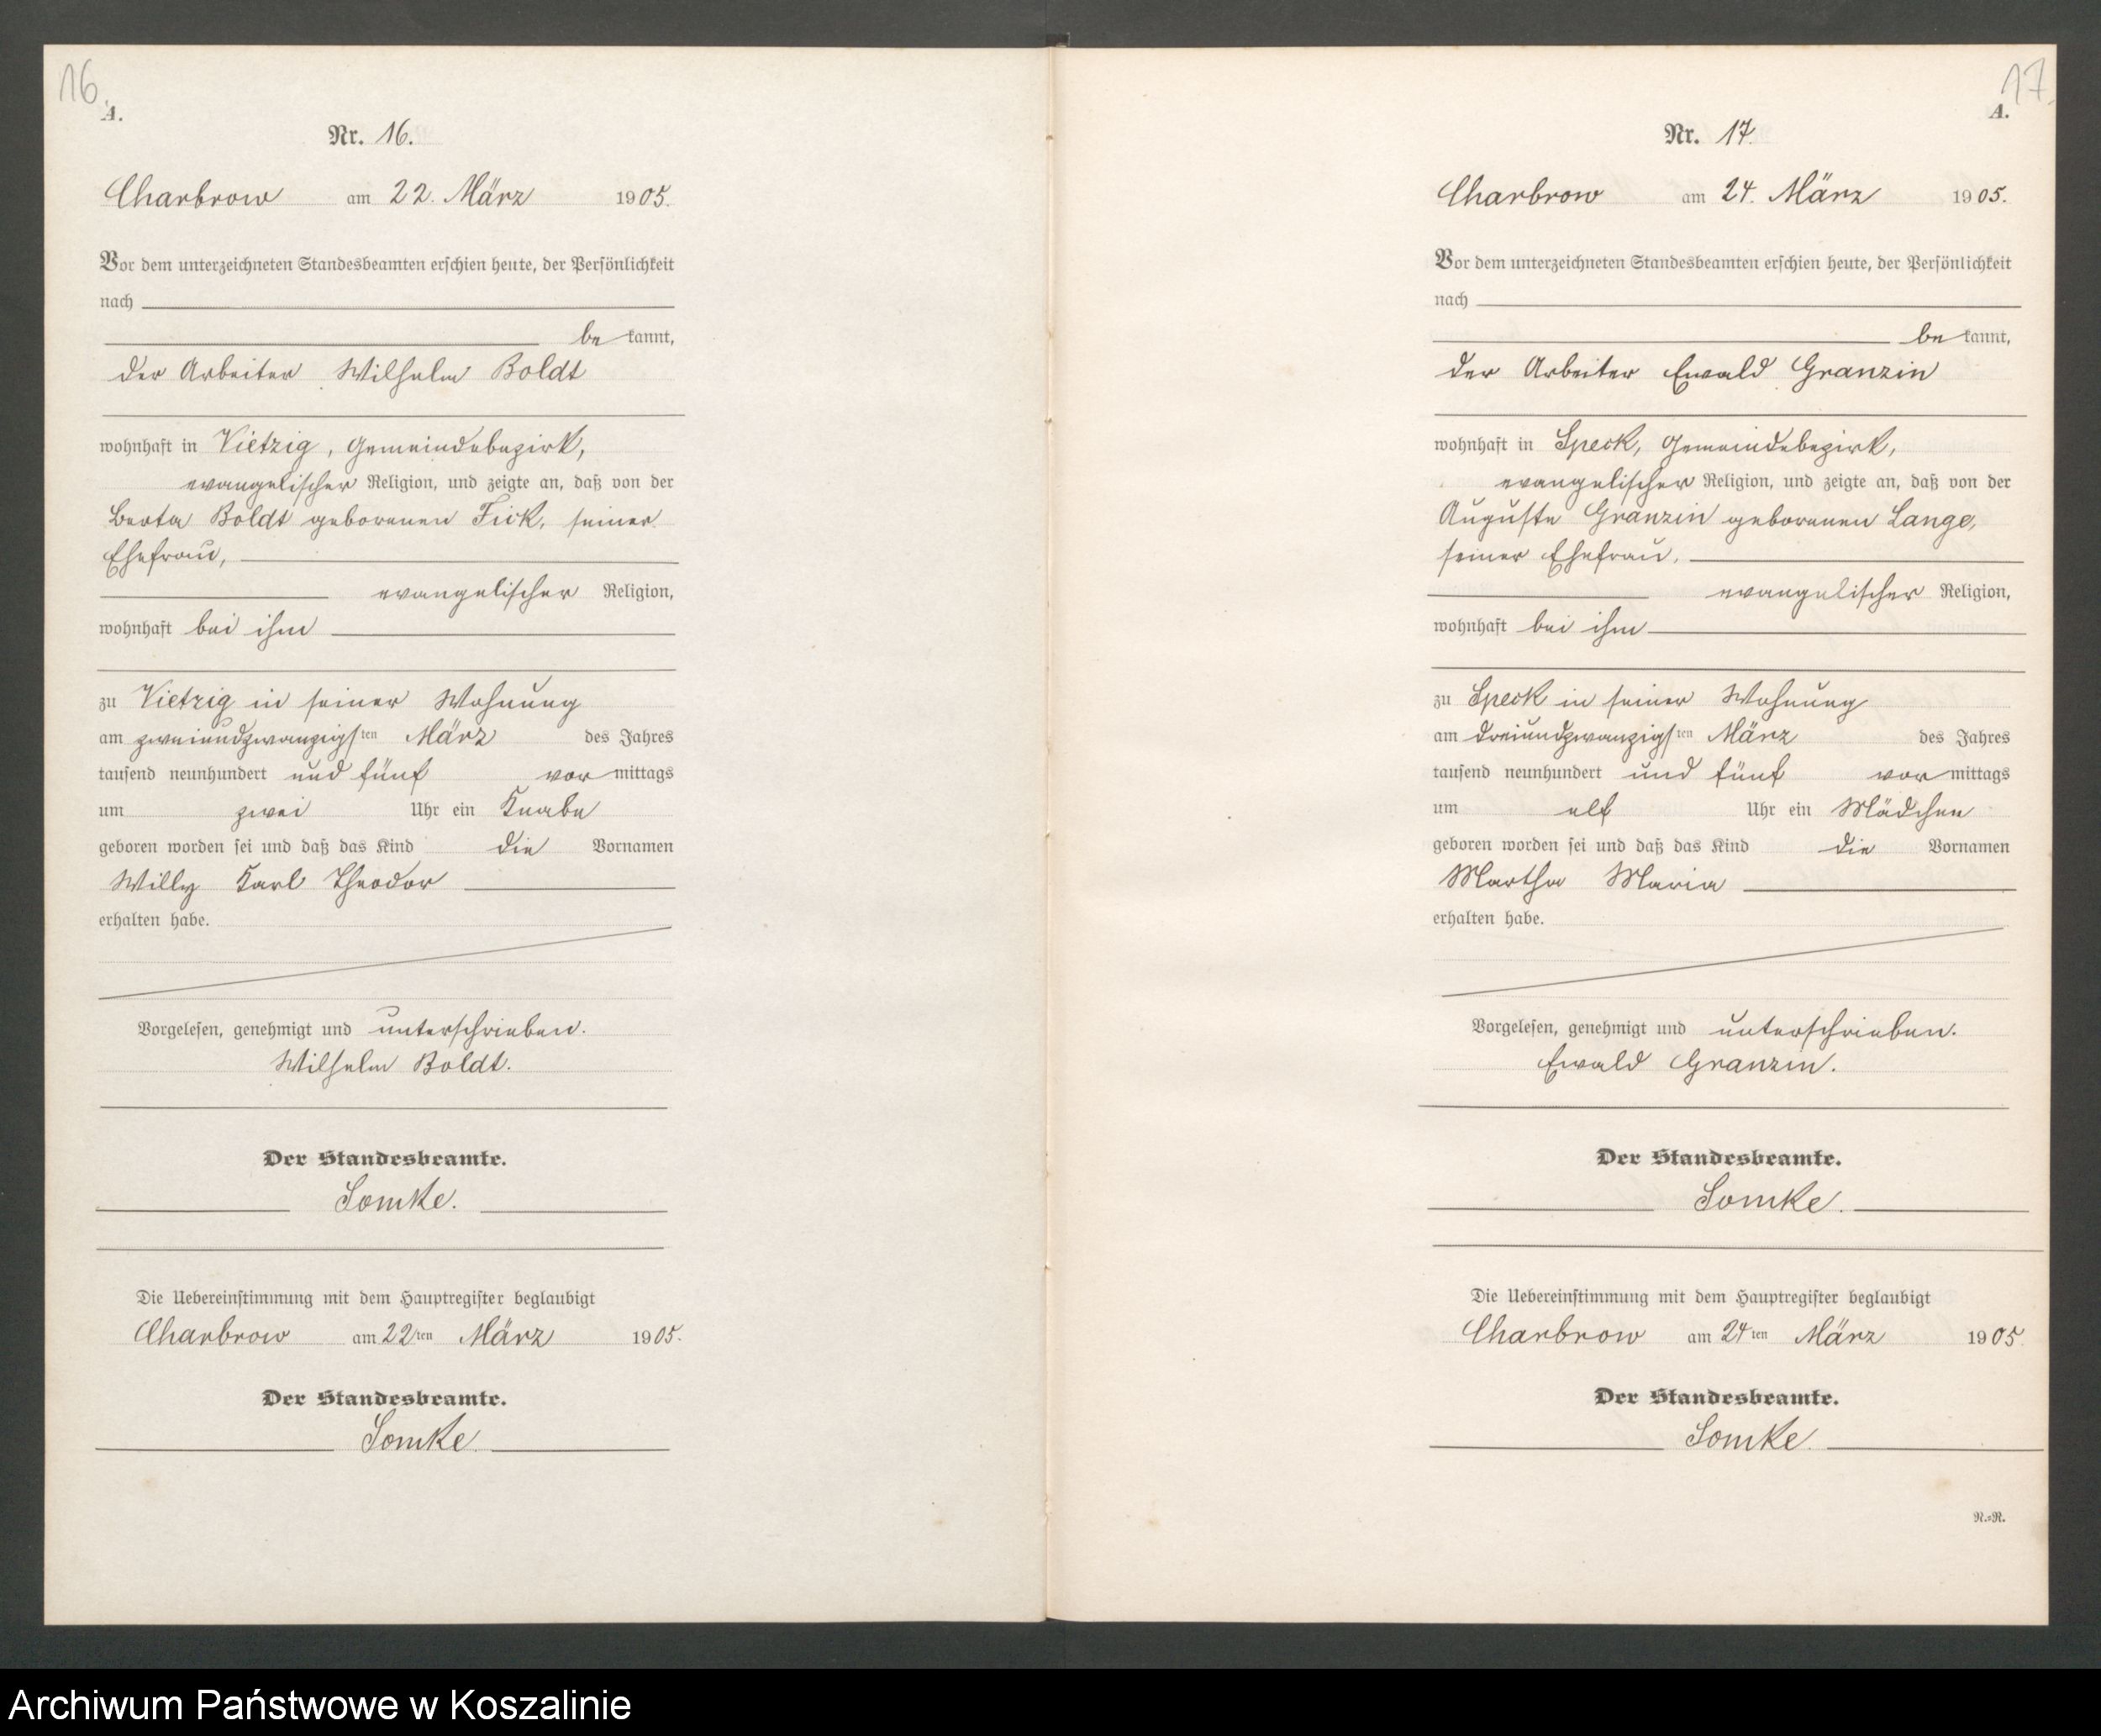 16.
A.
Nr. 16.
Charbrow am 22. März 1905.
Vor dem unterzeichneten Standesbeamten erschien heute, der Persönlichkeit
nach
be kannt,
der Arbeiter Wilhelm Boldt
wohnhaft in Vietzig, Gemeindebezirk,
evangelischer Religion, und zeigte an, daß von der
Berta Boldt geborenen Fick, seiner
Ehefrau,
evangelischer Religion,
wohnhaft bei ihm
zu Vietzig in seiner Wohnung
am zweiundzwanzigsten März des Jahres
tausend neunhundert und fünf vor mittags
um zwei Uhr ein Knabe
geboren worden sei und daß das Kind die Vornamen
Willy Karl Theodor
erhalten habe.
Vorgelesen, genehmigt und unterschrieben.
Wilhelm Boldt.
Der Standesbeamte.
Somke.
Die Uebereinstimmung mit dem Hauptregister beglaubigt
Charbrow am 22ten März 1905.
Der Standesbeamte.
Somke.
17.
A.
Nr. 17.
Charbrow am 24. März 1905.
Vor dem unterzeichneten Standesbeamten erschien heute, der Persönlichkeit
nach
be kannt,
der Arbeiter Ewald Granzin
wohnhaft in Speck, Gemeindebezirk,
evangelischer Religion, und zeigte an, daß von der
Auguste Granzin geborenen Lange,
seiner Ehefrau,
evangelischer Religion,
wohnhaft bei ihm
zu Speck in seiner Wohnung
am dreiundzwanzigsten März des Jahres
tausend neunhundert und fünf vor mittags
um elf Uhr ein Mädchen
geboren worden sei und daß das Kind die Vornamen
Martha Maria
erhalten habe.
Vorgelesen, genehmigt und unterschrieben.
Ewald Granzin.
Der Standesbeamte.
Somke.
Die Uebereinstimmung mit dem Hauptregister beglaubigt
Charbrow am 24ten März 1905.
Der Standesbeamte.
Somke.
R.=R.
Archiwum Państwowe w Koszalinie